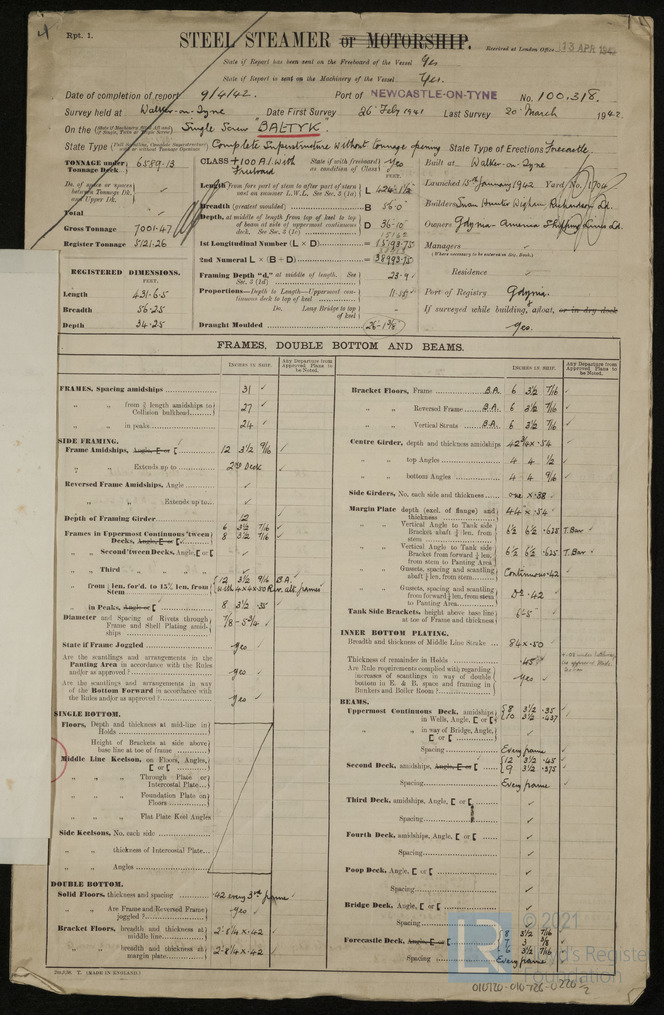 4
Rpt. 1.
STEEL STEAMER or MOTORSHIP.
Received at London Office 13 APR 1942
State if Report has been sent on the Freeboard of the Vessel Yes
State if Report is sent on the Machinery of the Vessel Yes.
Date of completion of report 9/4/42. Port of NEWCASTLE-ON-TYNE No. 100,318.
Survey held at Walker-on-Tyne Date First Survey 26 Feby 1941 Last Survey 20 March 1942
On the Single Screw "BALTYK."
State Type Complete Superstructure without tonnage opening State Type of Erections Forecastle.
TONNAGE under Tonnage Deck 6589.13
Do. of space or spaces between Tonnage Dk. and Upper Dk.
Total
Gross Tonnage 7001.47
Register Tonnage 5121.26
CLASS +100 A.1. with Freeboard State if with freeboard as condition of Class Yes
FEET.
Length from fore part of stem to after part of stern post on summer L.W.L. See Sec. 2 (1a) L 424-1½
Breadth (greatest moulded) B 56.0
Depth, at middle of length from top of keel to top of beam at side of uppermost continuous deck. See Sec. 2 (1c) D 36-10
1st Longitudinal Number (L × D) = 15193.75
2nd Numeral L × (B + D) = 38993.75
Framing Depth "d," at middle of length. See Sec. 2 (1d) 23.9
Proportions—Depth to Length—Uppermost continuous deck to top of keel 11.55
Do. Long Bridge to top of keel
Draught Moulded 26-1⅜
Built at Walker-on-Tyne
Launched 15th January 1942 Yard No. 1704
Builders Swan Hunter Wigham Richardson Ld.
Owners Gdynia-America Shipping Lines Ld.
Managers
(Where necessary to be entered in Reg. Book.)
Residence
Port of Registry Gdynia.
If surveyed while building, afloat, or in dry dock
Yes.
REGISTERED DIMENSIONS.
FEET.
Length 431.65
Breadth 56.25
Depth 34.25
FRAMES, DOUBLE BOTTOM AND BEAMS.
INCHES IN SHIP.
Any Departure from Approved Plans to be Noted.
FRAMES, Spacing amidships 31
" " from ⅗ length amidships to Collision bulkhead 27
" " in peaks 24
SIDE FRAMING.
Frame Amidships, Angle, E or [ 12 3½ 9/16
" " Extends up to 2nd Deck
Reversed Frame Amidships, Angle
" " Extends up to
Depth of Framing Girder 12
Frames in Uppermost Continuous 'tween Decks, Angle, E or [ 6 3½ 7/16
8 3½ 7/16
" " Second 'tween Decks, Angle, E or [
" " Third " "
" " from ⅗ len. for'd. to 15% len. from Stem 12 3½ 9/16 B.A.
with 4x4x.50 Rev. alt. frames
" " in Peaks, Angle or [ 8 3½ .35
Diameter and Spacing of Rivets through Frame and Shell Plating amidships 7/8 - 5¾
State if Frame Joggled Yes
Are the scantlings and arrangements in the Panting Area in accordance with the Rules and/or as approved? Yes
Are the scantlings and arrangements in way of the Bottom Forward in accordance with the Rules and/or as approved? Yes
SINGLE BOTTOM.
Floors, Depth and thickness at mid-line in Holds
Height of Brackets at side above base line at toe of frame
Middle Line Keelson, on Floors, Angles, E or [
" " Through Plate or Intercostal Plate
" " Foundation Plate on Floors
" " Flat Plate Keel Angles
Side Keelsons, No. each side
" " thickness of Intercostal Plate
" " Angles
DOUBLE BOTTOM.
Solid Floors, thickness and spacing .42 every 3rd frame
" " Are Frame and Reversed Frame joggled? Yes
Bracket Floors, breadth and thickness at middle line 2'-8¼ x .42
" " breadth and thickness at margin plate 2'-8¼ x .42
INCHES IN SHIP.
Any Departure from Approved Plans to be Noted.
Bracket Floors, Frame B.A. 6 3½ 7/16
" " Reversed Frame B.A. 6 3½ 7/16
" " Vertical Struts B.A. 6 3½ 7/16
Centre Girder, depth and thickness amidships 42¾ x .54
" " top Angles 4 4 ½
" " bottom Angles 4 4 9/16
Side Girders, No. each side and thickness one x .38
Margin Plate depth (excl. of flange) and thickness 44 x .54
" " Vertical Angle to Tank side Bracket abaft ¼ len. from stem 6½ 6½ .625 T. Bar
" " Vertical Angle to Tank side Bracket from forward ¼ len. from stem to Panting Area 6½ 6½ .625 T. Bar
" " Gussets, spacing and scantling abaft ¼ len. from stem Continuous .42
" " Gussets, spacing and scantling from forward ¼ len. from stem to Panting Area Do .42
Tank Side Brackets, height above base line at toe of Frame and thickness
INNER BOTTOM PLATING.
Breadth and thickness of Middle Line Strake 84 x .50
Thickness of remainder in Holds .45
Are Rule requirements complied with regarding increases of scantlings in way of double bottom in E. & B. space and framing in Bunkers and Boiler Room? Yes
BEAMS.
Uppermost Continuous Deck, amidships in Wells, Angle, E or [ 8 3½ .35
10 3½ .437
" " in way of Bridge, Angle, E or [
Spacing Every frame
Second Deck, amidships, Angle, E or [ 12 3½ .45
9 3½ .375
Spacing Every frame
Third Deck, amidships, Angle, E or [
Spacing
Fourth Deck, amidships, Angle, E or [
Spacing
Poop Deck, Angle, E or [
Spacing
Bridge Deck, Angle, E or [
Spacing
Forecastle Deck, Angle, E or [ 8 3½ 7/16
7 3 3/8
6 3½ 7/16
Spacing Every frame
(MADE IN ENGLAND.)
LR
© 2021
Lloyd's Register
Foundation
010720-010726-0220
2